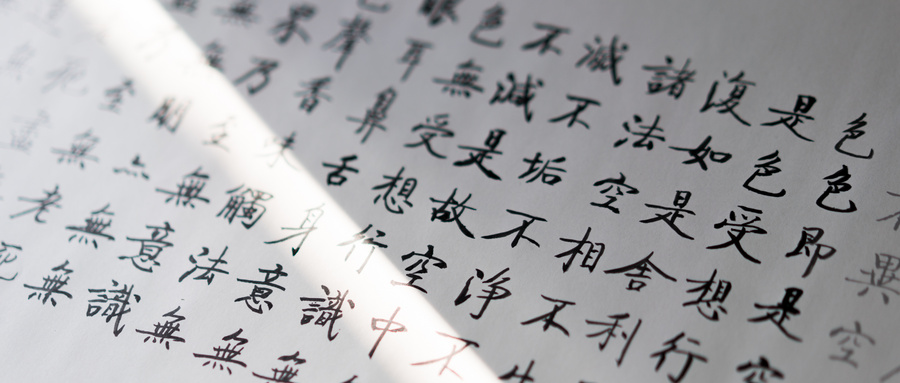 不異空
色色即是空
是色受想行
復如是舍利
諸法空相不生
滅不垢不淨不
不減是故空中
色無受想行識無
眼耳鼻舌身意無
色聲香味觸法無
界乃至無意識
無
無無
至無老死
死盡